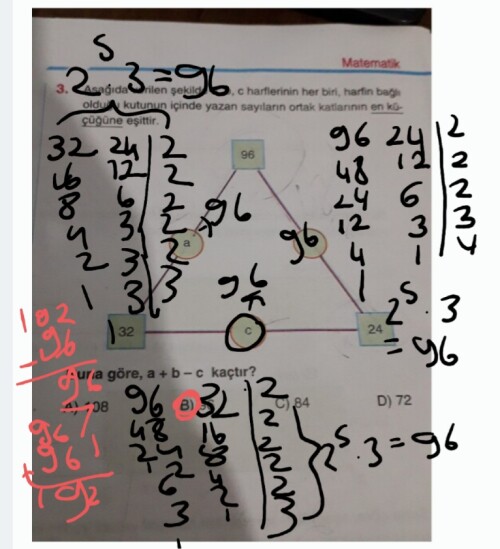 2⁵ 3 = 96
Matematik
3. Aşağıda verilen şekilde a, b, c harflerinin her biri, harfin bağlı
olduğu kutunun içinde yazan sayıların ortak katlarının en kü-
çüğüne eşittir.
32 24 | 2
16 12 | 2
8 6 | 2
4 3 | 2
2 3 | 2
1 3 | 3
96
96 24 | 2
48 12 | 2
24 6 | 2
12 3 | 3
4 1 | 4
1
a
96
96
96
32
c
24
2⁵ . 3
= 96
192
- 96
96
Buna göre, a + b – c kaçtır?
A) 108
B)
C) 84
D) 72
96 32 | 2
48 16 | 2
24 8 | 2
12 4 | 2
6 2 | 2
3 1 | 3
1
2⁵ . 3 = 96
96
+ 96
192